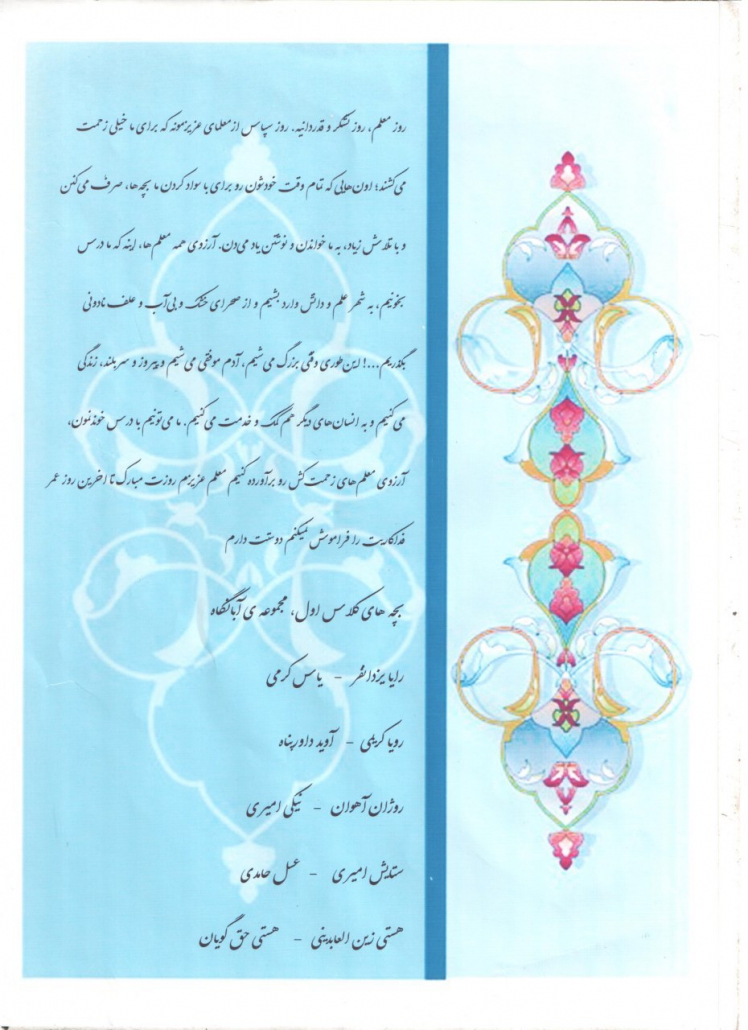 روز معلم، روز تشکر و قدردانیه. روز سپاس از معلمای عزیزمونه که برای ما خیلی زحمت
می‌کشند؛ اون‌هایی که تمام وقت خودشون رو برای با سواد کردن ما بچه‌ها، صرف می‌کنن
و با تلاش زیاد، به ما خواندن و نوشتن یاد می‌دن. آرزوی همه معلم‌ها، اینه که ما درس
بخونیم، به شهر علم و دانش وارد بشیم و از صحرای خشک و بی‌آب و علف نادونی
بگذریم...! این‌طوری وقتی بزرگ می‌شیم، آدم موفقی می‌شیم و پیروز و سربلند، زندگی
می‌کنیم و به انسان‌های دیگر هم کمک و خدمت می‌کنیم. ما می‌تونیم با درس خوندنمون،
آرزوی معلم‌های زحمت‌کش رو برآورده کنیم معلم عزیزم روزت مبارک تا اخرین روز عمر
فداکاریت را فراموش نمیکنم دوستت دارم
بچه های کلاس اول، مجموعه ی آبانگاه
رایا یزدانفر - یاس کرمی
رویا کریمی - آوید داورپناه
روژان آهوان - نیکی امیری
ستایش امیری - عسل حامدی
هستی زین العابدینی - هستی حق گویان